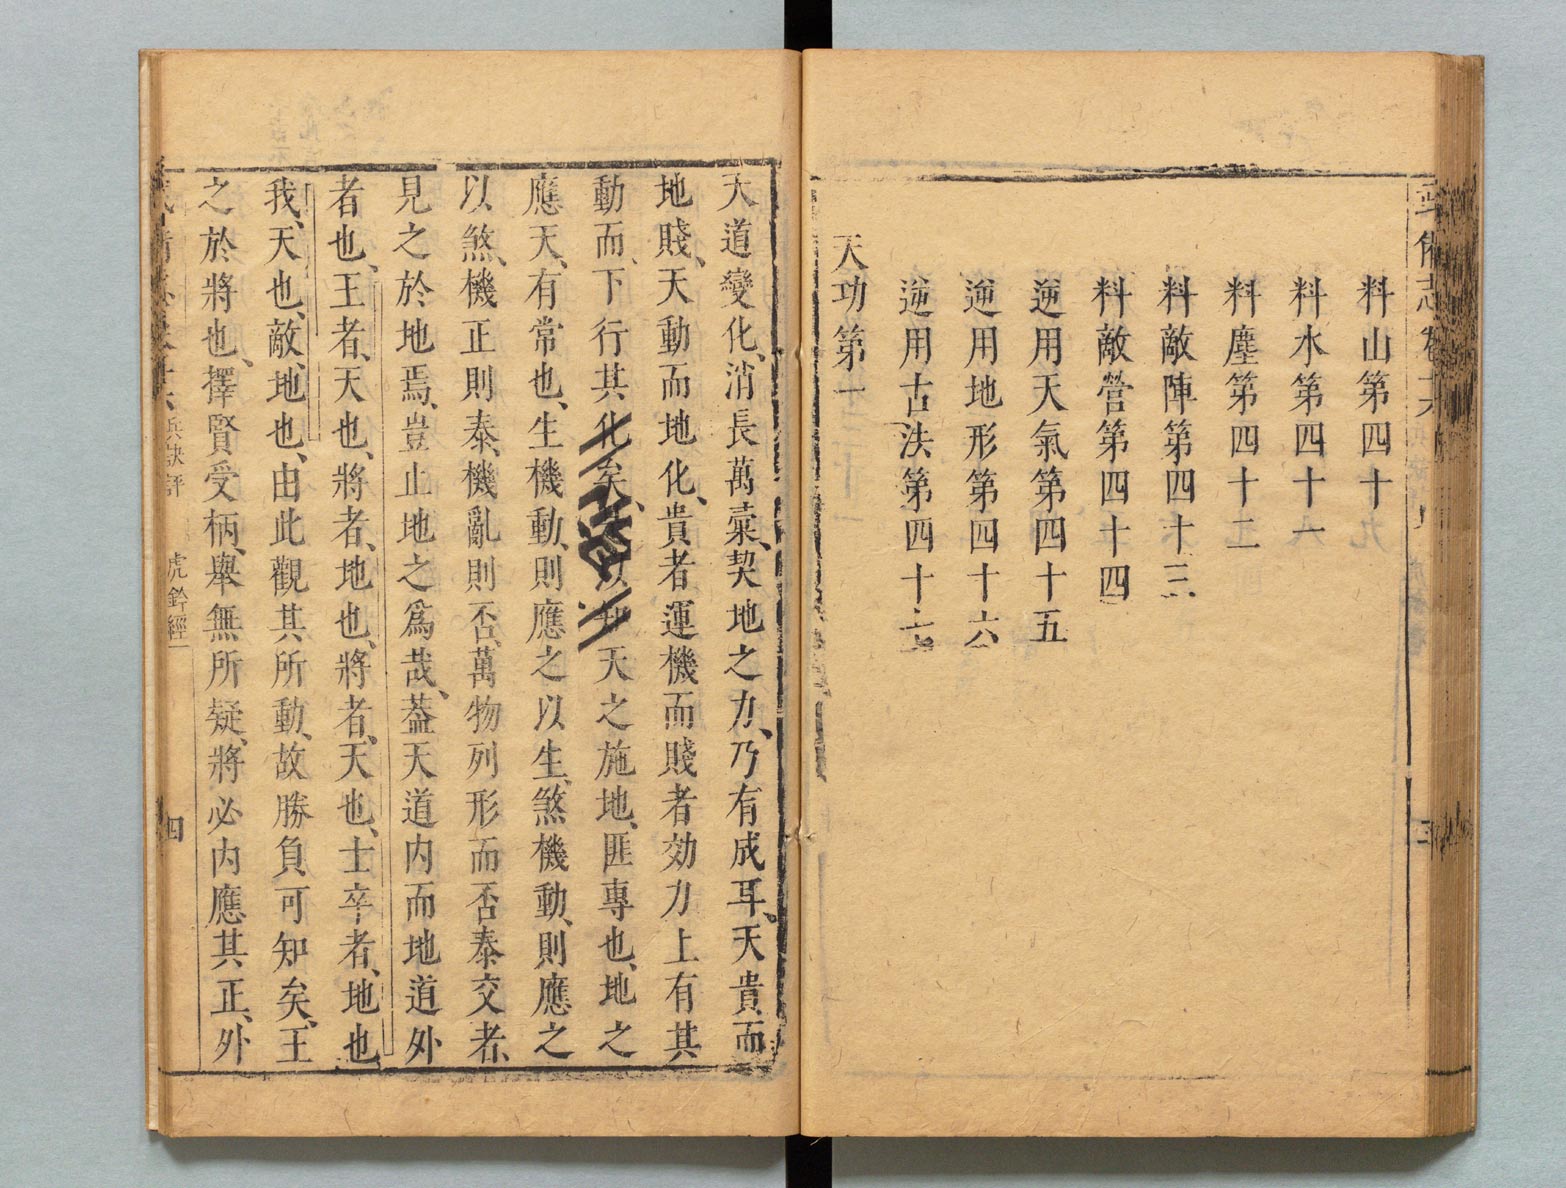 料山第四十
料水第四十一
料塵第四十二
料敵陣第四十三
料敵營第四十四
逆用天氣第四十五
逆用地形第四十六
逆用古法第四十六
天功第一
大道變化、消長萬彙、契地之力、乃有成耳、天貴而
地賤、天動而地化、貴者運機而賤者効力上有其
動而下行其化矣、以知天之施地、匪專也、地之
應天、有常也、生機動、則應之以生、煞機動、則應之
以煞、機正則泰、機亂則否、萬物列形而否泰交者、
見之於地焉、豈止地之爲哉、葢天道内而地道外
者也、王者、天也、將者、地也、將者、天也、士卒者、地也
我、天也、敵、地也、由此觀其所動、故勝負可知矣、王
之於將也、擇賢受柄、舉無所疑、將必内應其正、外
兵訣評 虎鈐經一
四